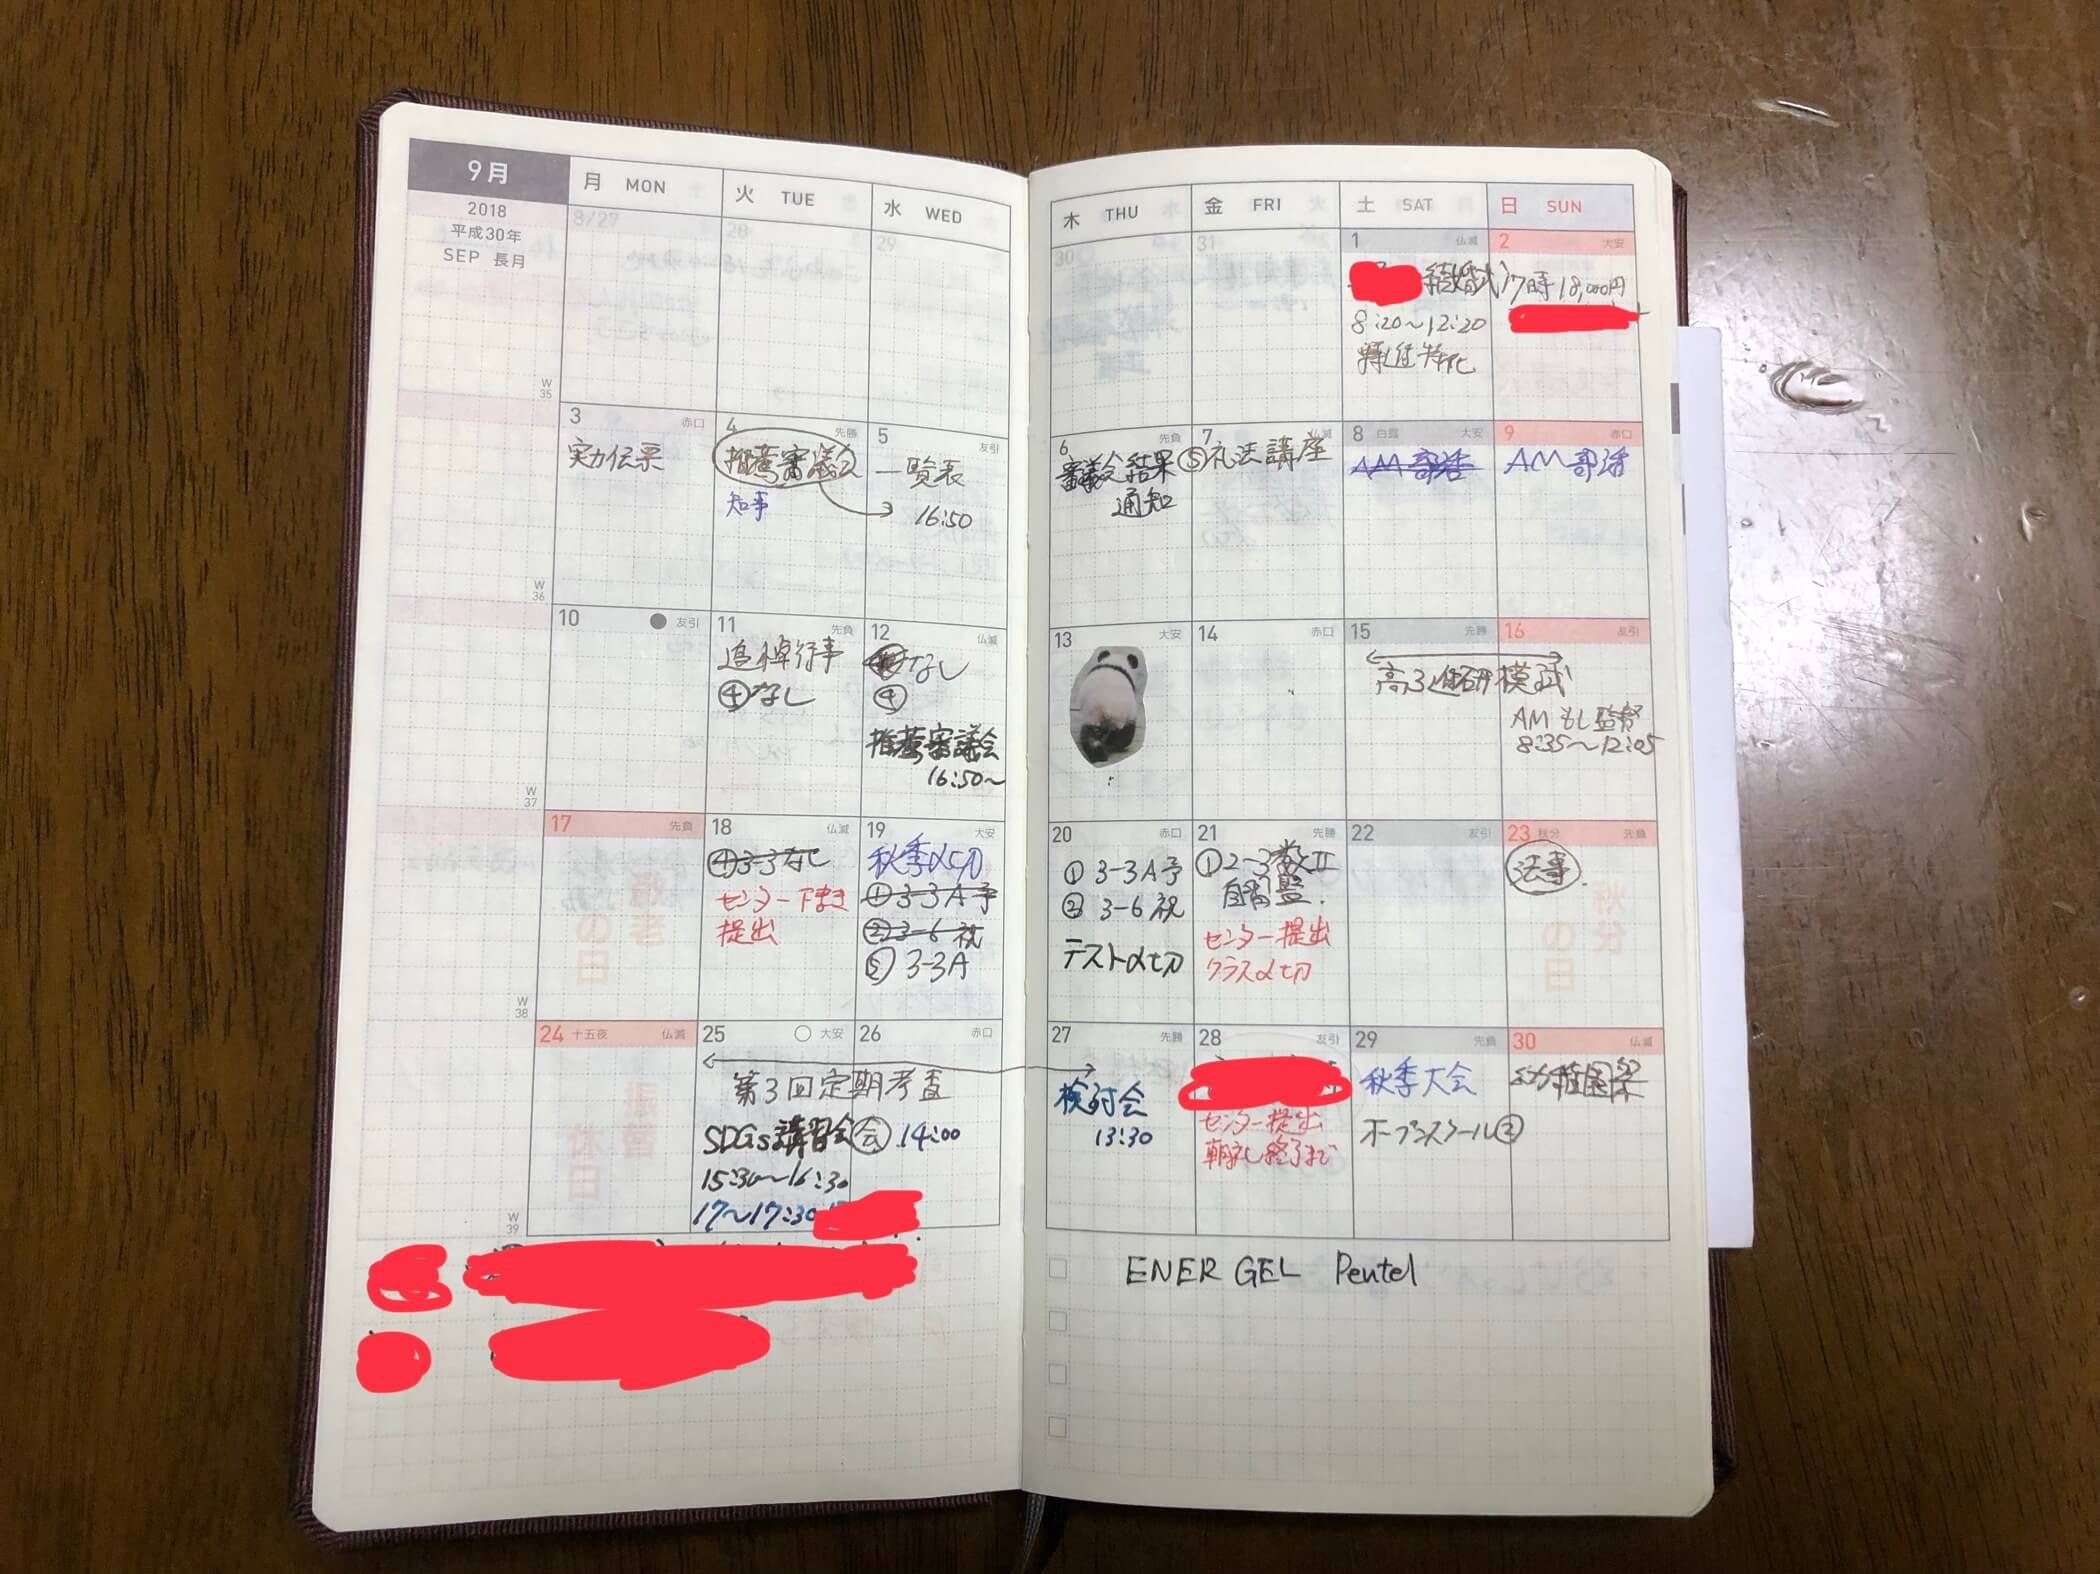 9月
2018
平成30年
SEP 長月
月 MON
火 TUE
水 WED
木 THU
金 FRI
土 SAT
日 SUN
8/27
28
29
30
31
1 仏滅
結婚式
8:20〜12:20
2 大安
17時 18,000円
W
35
3 赤口
実力伝票
4 先勝
推薦審議会
知事
5 友引
一覧表
16:50
6 先負
審議会結果
通知
7 仏滅
⑤礼法講座
8 白露 大安
AM部活
9 赤口
AM部活
W
36
10 友引
11 先負
追悼行事
④なし
12 仏滅
なし
④
推薦審議会
16:50〜
13 大安
14 赤口
15 先勝
16 友引
高3進研模試
AM もし監督
8:35〜12:05
W
37
17 先負
18 仏滅
④3-3なし
センター下書き
提出
19 大安
秋季〆切
①3-3A予
②3-6 祝
⑤ 3-3A
20 赤口
① 3-3A予
② 3-6 祝
テスト〆切
21 先勝
①2-3数II
自習監.
センター提出
クラス〆切
22 友引
23 秋分 先負
法事
W
38
24 十五夜 仏滅
25 大安
26 赤口
第3回定期考査
SDGs講習会
会 14:00
15:30〜16:30
17〜17:30
27 先勝
検討会
13:30
28 友引
センター提出
朝礼終了まで
29 先負
秋季大会
オープンスクール②
30 仏滅
幼稚園祭
W
39
ENER GEL Pentel